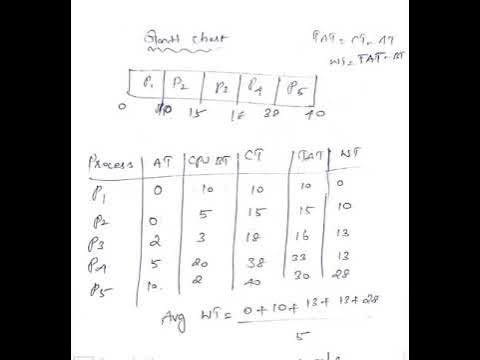 Gantt chart
TAT = CT - AT
WT = TAT - BT
P1 P2 P2 P4 P5
0 10 15 18 38 40
Process AT CPU BT CT TAT WT
P1 0 10 10 10 0
P2 0 5 15 15 10
P3 2 3 18 16 13
P4 5 20 38 33 13
P5 10. 2 40 30 28
Avg WT = 0+10+13+13+28
5